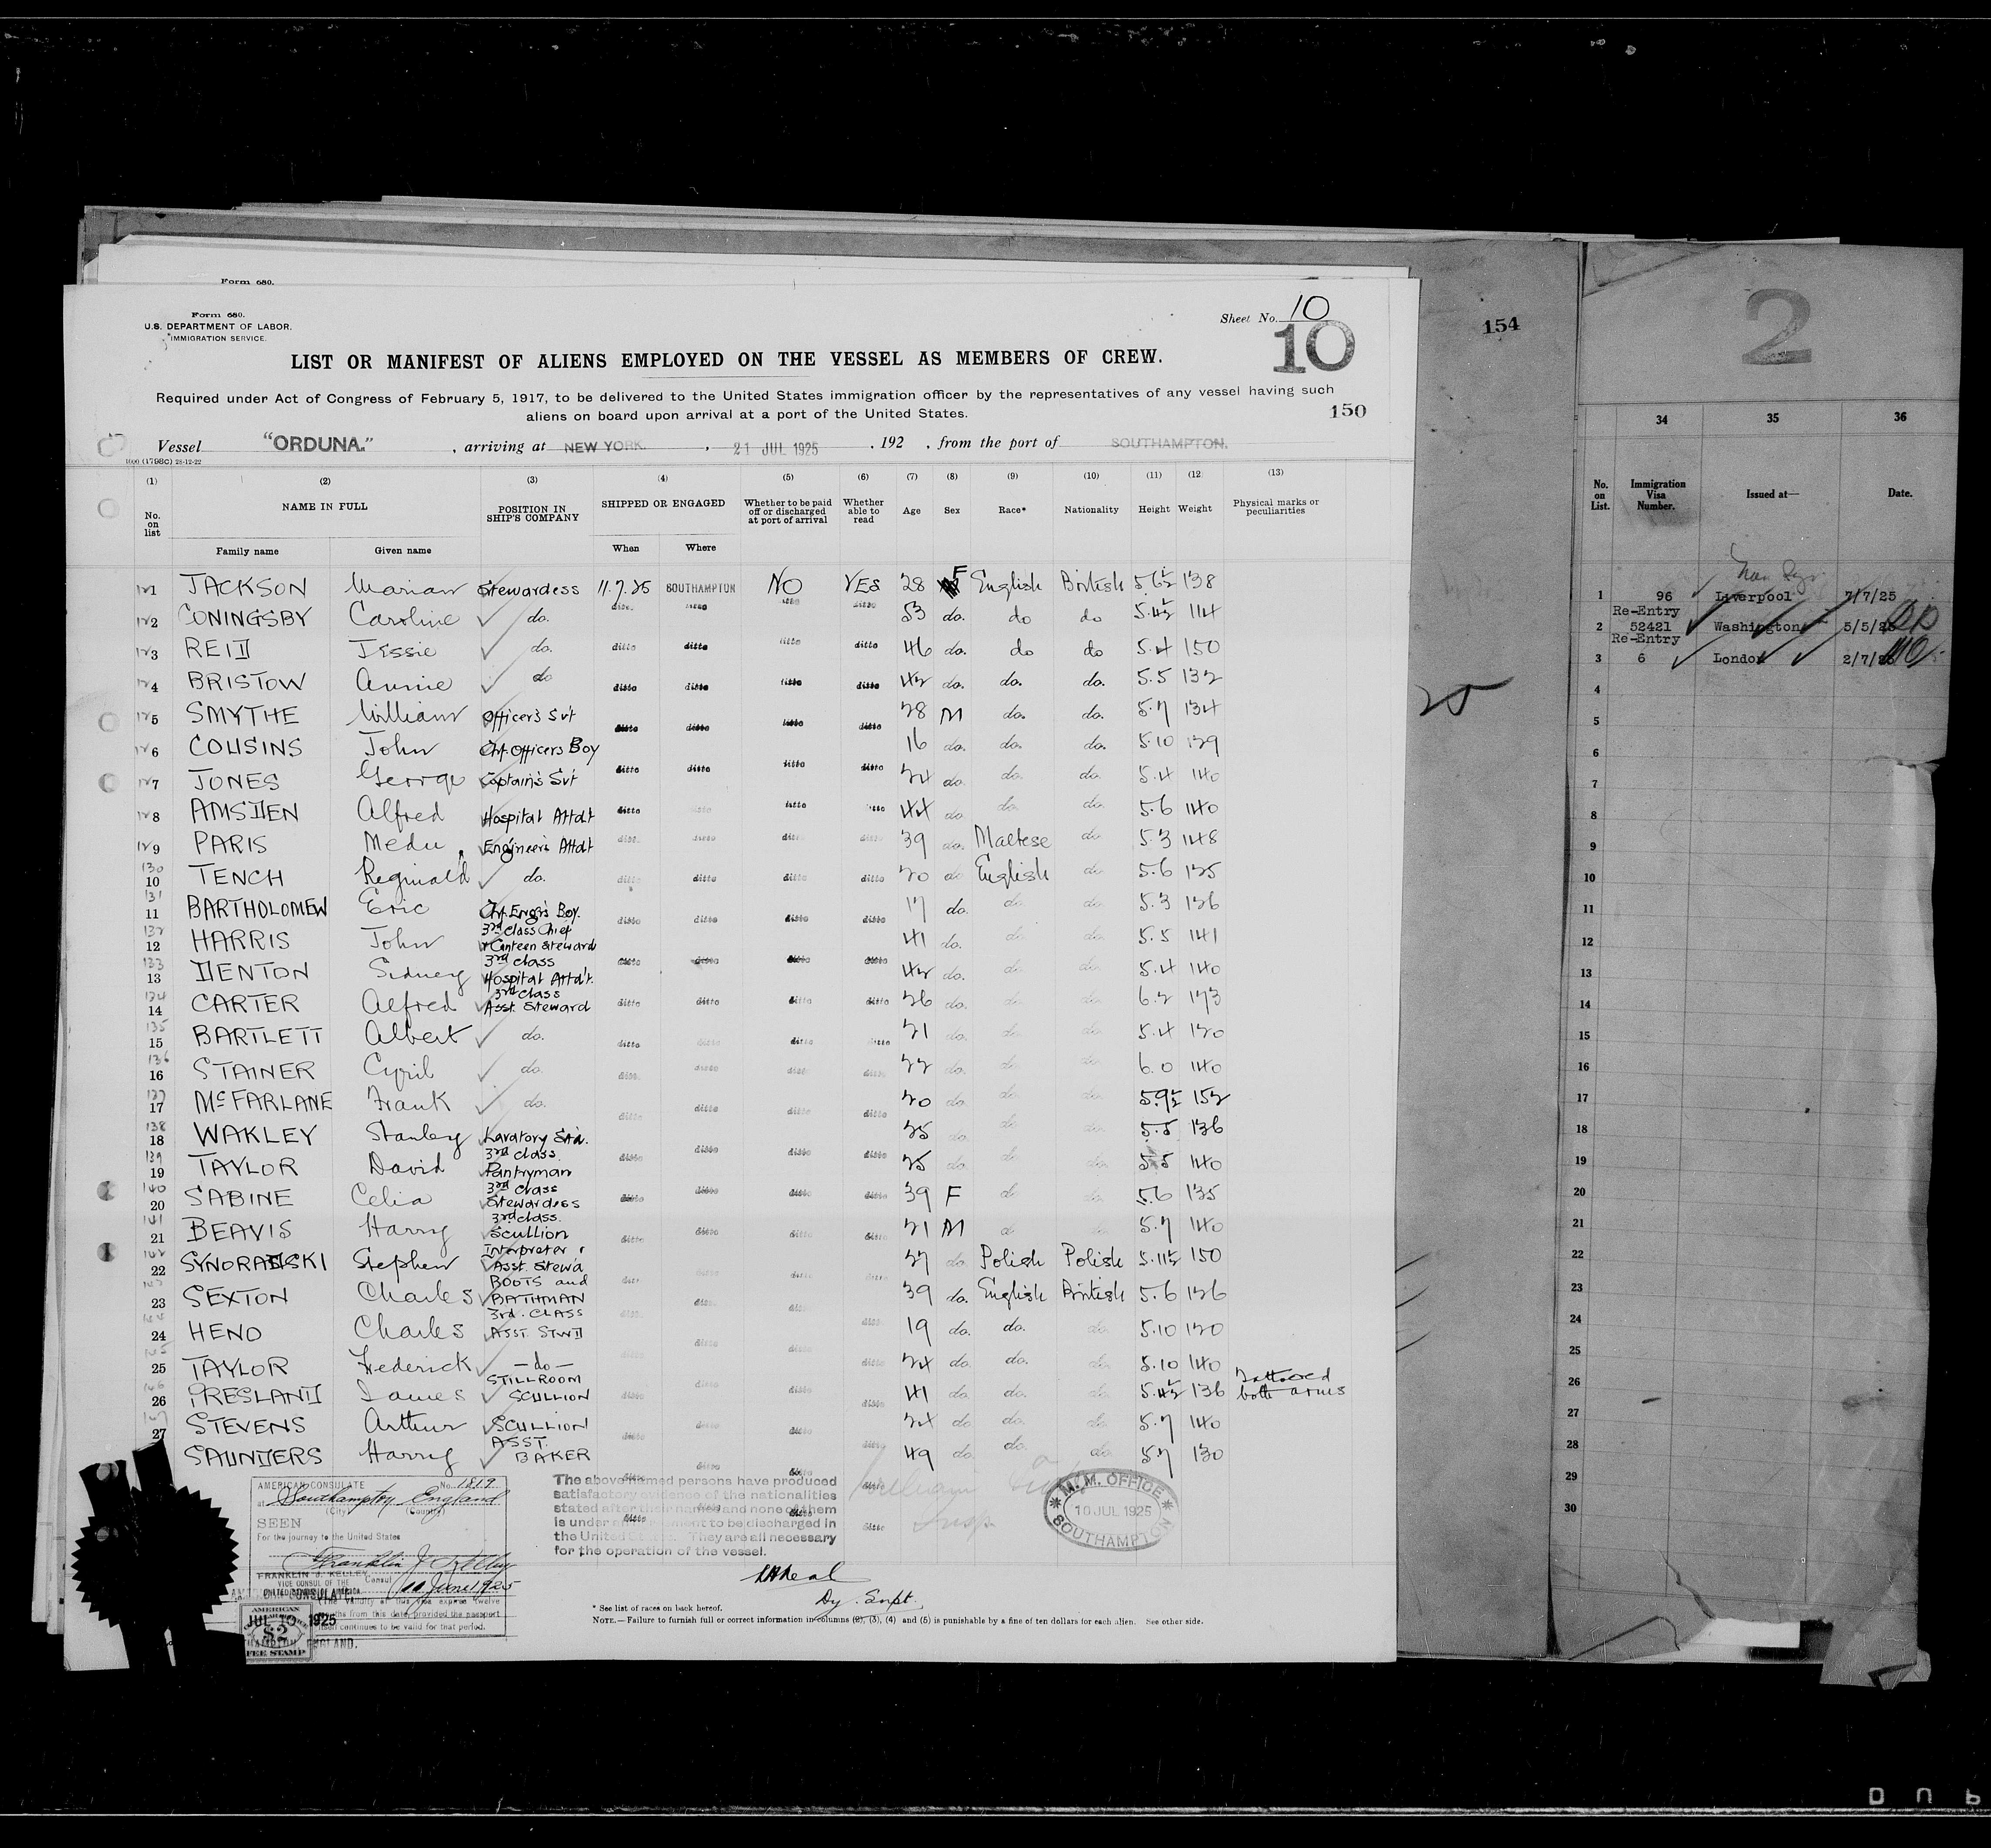 Form 680.
Form 680.
U.S. DEPARTMENT OF LABOR.
IMMIGRATION SERVICE.
Sheet No. 10
10
LIST OR MANIFEST OF ALIENS EMPLOYED ON THE VESSEL AS MEMBERS OF CREW.
Required under Act of Congress of February 5, 1917, to be delivered to the United States immigration officer by the representatives of any vessel having such
aliens on board upon arrival at a port of the United States.
150
Vessel "ORDUNA." , arriving at NEW YORK. , 21 JUL 1925 , 192 , from the port of SOUTHAMPTON.
1600 (1798C) 28-12-22
(1) (2) (3) (4) (5) (6) (7) (8) (9) (10) (11) (12 (13)
No. on list NAME IN FULL POSITION IN SHIP'S COMPANY SHIPPED OR ENGAGED Whether to be paid off or discharged at port of arrival Whether able to read Age Sex Race* Nationality Height Weight Physical marks or peculiarities
Family name Given name When Where
1 JACKSON Marian Stewardess 11.7.25 SOUTHAMPTON NO YES 28 F English British 5.6½ 138
2 CONINGSBY Caroline do. ditto ditto ditto ditto 53 do. do do 5.4½ 114
3 REID Jessie do. ditto ditto ditto ditto 46 do. do do 5.4 150
4 BRISTOW Annie do ditto ditto ditto ditto 42 do. do. do. 5.5 132
5 SMYTHE William Officer's Svt ditto ditto ditto ditto 28 M do. do. 5.7 134
6 COUSINS John Chf. Officers Boy 16 do. do. do. 5.10 129
7 JONES George Captain's Svt ditto ditto ditto ditto 24 do do. do. 5.4 140
8 AMSDEN Alfred Hospital Attdt ditto ditto ditto ditto 44 do. do. do. 5.6 140
9 PARIS Medu Engineers Attdt ditto ditto ditto ditto 39 do. Maltese do 5.3 148
130
10 TENCH Reginald do. ditto ditto ditto ditto 20 do English do 5.6 125
131
11 BARTHOLOMEW Eric Chf. Engrs Boy. ditto ditto ditto ditto 17 do. do. do. 5.3 126
132 3rd Class Chief
12 HARRIS John & Canteen Steward 41 do. do do. 5.5 141
133 3rd class
13 DENTON Sidney Hospital Attdt. ditto ditto ditto ditto 42 do. do. do. 5.4 140
134 3rd class
14 CARTER Alfred Asst. Steward ditto ditto ditto ditto 26 do. do. do. 6.2 173
135
15 BARTLETT Albert do. ditto ditto ditto ditto 21 do. do do. 5.4 120
136
16 STAINER Cyril do. ditto ditto ditto ditto 22 do. do do. 6.0 140
137
17 McFARLANE Frank do. ditto ditto ditto ditto 20 do. do. do. 5.9½ 152
138
18 WAKLEY Stanley Lavatory Std. 25 do. do. do. 5.5 136
139 3rd class
19 TAYLOR David Pantryman ditto ditto ditto ditto 25 do. do. do. 5.5 140
140 3rd class
20 SABINE Celia Stewardess ditto ditto ditto ditto 39 F do. do. 5.6 135
141 3rd class.
21 BEAVIS Harry Scullion ditto ditto ditto ditto 21 M do. 5.7 140
142 Interpreter &
22 SYNORADSKI Stephen Asst. Stewd 27 do Polish Polish 5.11½ 150
BOOTS and
23 SEXTON Charles BATHMAN 39 do. English British 5.6 126
3rd. CLASS
24 HEND Charles ASST. STWD 19 do. do. do. 5.10 120
25 TAYLOR Frederick — do — 24 do. do. do. 5.10 140
STILLROOM
26 PRESLAND James SCULLION 41 do. do. do. 5.4½ 136 Tattooed both arms
27 STEVENS Arthur SCULLION 24 do. do. do. 5.7 140
ASST.
SAUNDERS Harry BAKER 49 do. do. do. 5.7 130
AMERICAN CONSULATE No. 1819
at Southampton, England
(City) (Country)
SEEN
For the journey to the United States
Franklin J. Kelley
FRANKLIN J. KELLEY
VICE CONSUL OF THE
Consul
The validity of this visa expires twelve
months from this date, provided the passport
itself continues to be valid for that period.
JUL 10 1925
AMERICAN
$2
FEE STAMP
ENGLAND.
The above named persons have produced
satisfactory evidence of the nationalities
stated after their names and none of them
is under agreement to be discharged in
the United States. They are all necessary
for the operation of the vessel.
M.M. OFFICE
10 JUL 1925
SOUTHAMPTON
Dy. Supt.
* See list of races on back hereof.
NOTE.—Failure to furnish full or correct information in columns (2), (3), (4) and (5) is punishable by a fine of ten dollars for each alien. See other side.
154
25
2
34 35 36
No. on List. Immigration Visa Number. Issued at— Date.
1 96 Liverpool 7/7/25
Re-Entry
2 52421 Washington 5/5/25
Re-Entry
3 6 London 2/7/25
4
5
6
7
8
9
10
11
12
13
14
15
16
17
18
19
20
21
22
23
24
25
26
27
28
29
30